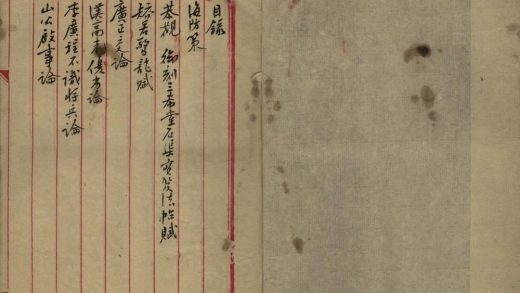 目錄
海防策
恭觀 御刻三希堂石渠寶笈法帖賦
婺龍賦
廣正交論
漢高不侯者論
李廣程不識將兵論
山公啟事論